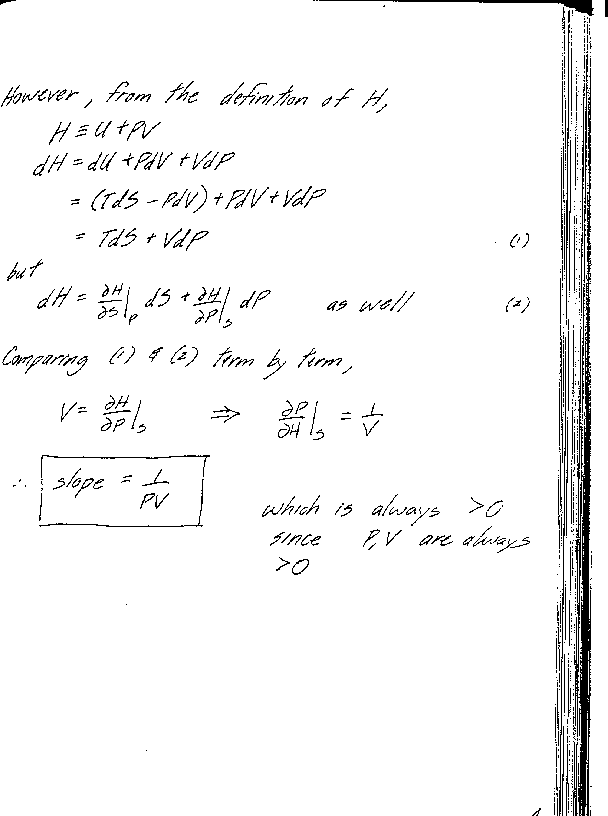 However, from the definition of H,
H ≡ U + PV
dH = dU + PdV + VdP
= (TdS - PdV) + PdV + VdP
= TdS + VdP (1)
but
dH = ∂H/∂S|_P dS + ∂H/∂P|_S dP as well (2)
Comparing (1) & (2) term by term,
V = ∂H/∂P|_S ⇒ ∂P/∂H|_S = 1/V
∴ slope = 1/PV
which is always >0
since P,V are always
>0